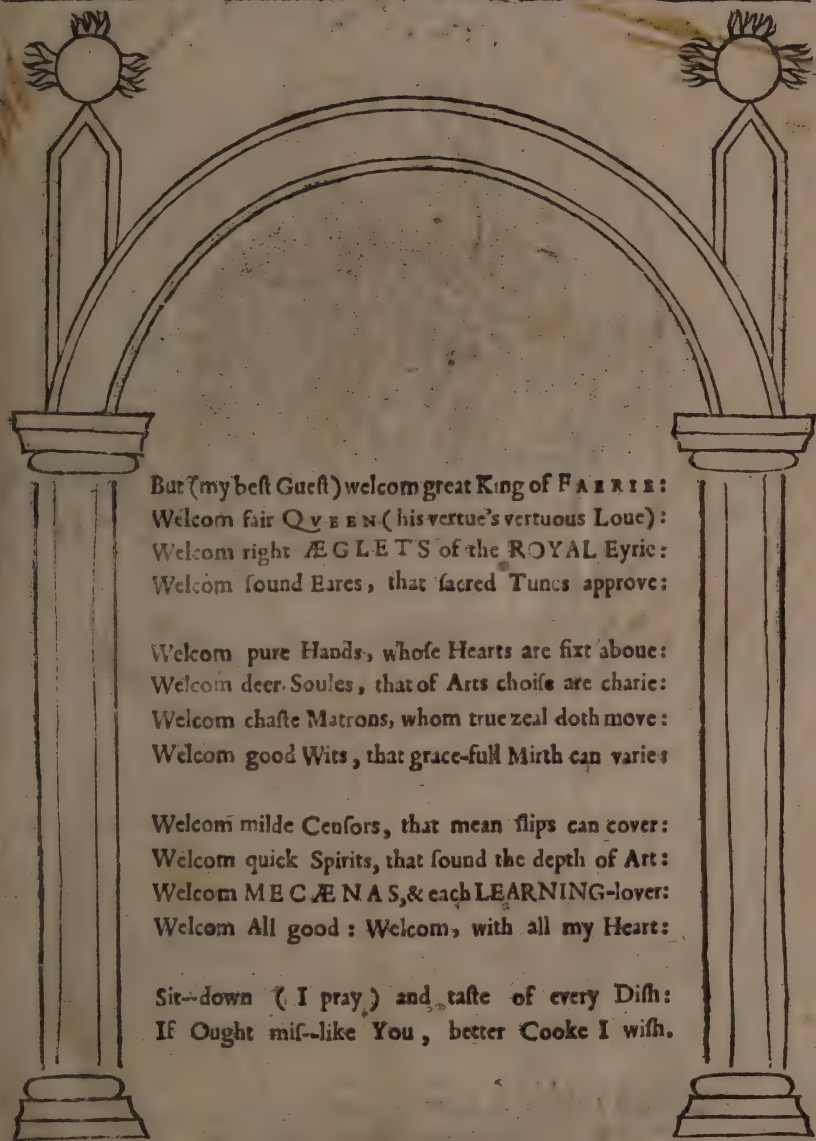 But (my beſt Gueſt) welcom great King of FAERIE:
Welcom fair QVEEN (his vertue's vertuous Loue):
Welcom right ÆGLETS of the ROYAL Eyrie:
Welcom ſound Eares, that ſacred Tunes approve:
Welcom pure Hands, whoſe Hearts are fixt aboue:
Welcom deer Soules, that of Arts choiſe are charie:
Welcom chaſte Matrons, whom true zeal doth move:
Welcom good Wits, that grace-full Mirth can varie:
Welcom milde Cenſors, that mean ſlips can cover:
Welcom quick Spirits, that ſound the depth of Art:
Welcom MECÆNAS, & each LEARNING-lover:
Welcom All good: Welcom, with all my Heart:
Sit-down (I pray) and taſte of every Diſh:
If Ought miſ-like You, better Cooke I wiſh.